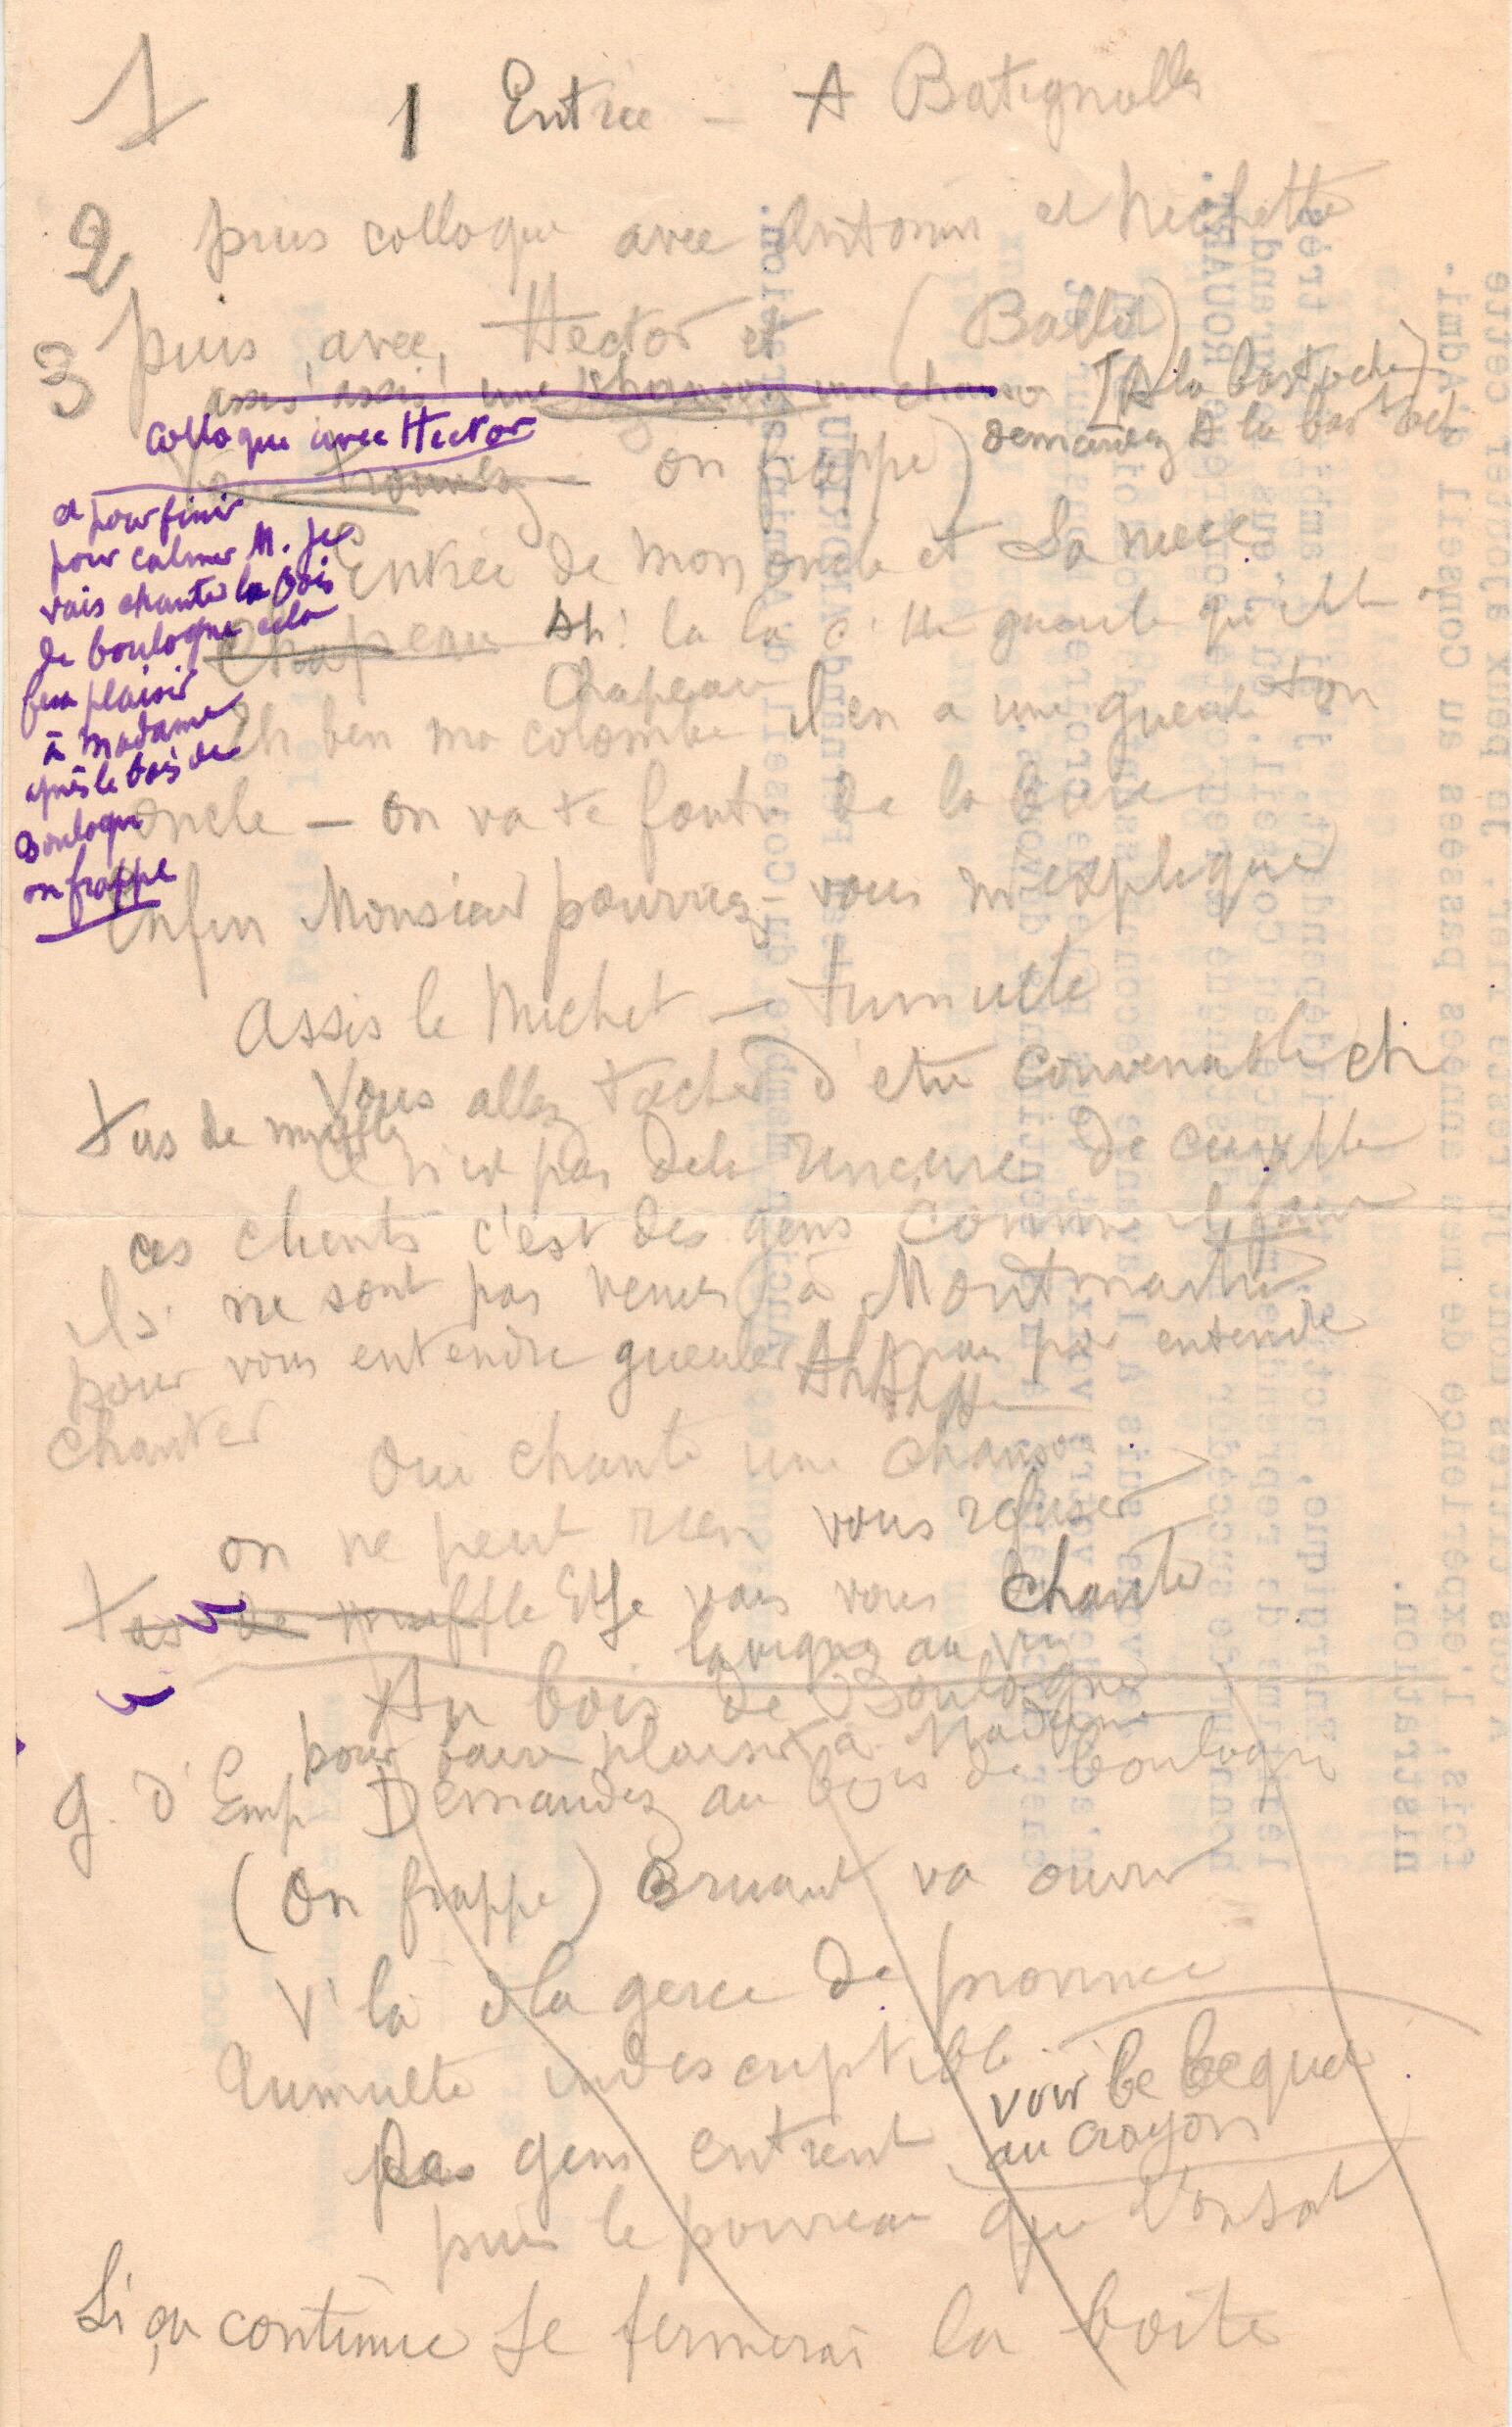 1 1 Entrée – A Batignolles
2 puis colloque avec Antonin et Nichette
3 puis avec Hector et (Ballet)
assis assis une chanson une chanson [A la bastoche)
colloque avec Hector demandez A la bastoch
on frappe)
et pour finir
pour calmer M. Je
vais chanter le bois
de boulogne cela
fera plaisir
à Madame
après le bois de
Boulogne
on frappe
Entrée de mon oncle et Sa niece
Chapeau Ah! la la c'tte gueule qu'elle a
Chapeau
Eh ben ma colombe il en a une gueule ton
oncle – on va te foutre de la
Enfin Monsieur pourriez-vous m'expliquer
Assis le Michet – tumulte
Vous allez tacher d'etre convenable eh
tas de muffle
Ce n'est pas de la rincure de cuvette
ces clients c'est des gens comme il faut
Ils ne sont pas venus à Montmartre
pour vous entendre gueuler mais pour entendre
Ah Ah Ah
chanter
Oui chante une chanson
on ne peut rien vous refuser
tas de muffle Et Je vais vous chanter
la vigne au vin
Au bois de Boulogne
pour faire plaisir à Madame
g. d'Emp Demandez au bois de boulogne
(On frappe) Bruant va ouvrir
V'là d'la gerce de province
Tumulte indescriptible
voir le becquet
au crayon
Des gens entrent
puis le pourceau que l'on sort
Si ça continue Je fermerai la boîte